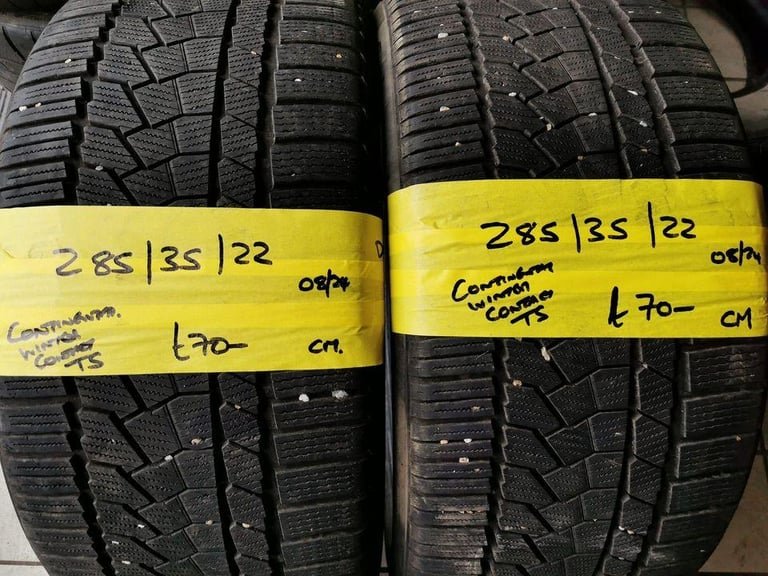 285/35/22
08/24
CONTINENTAL
WINTER
CONTACT
TS
£70-
CM.
D
285/35/22
08/24
CONTINENTAL
WINTER
CONTACT
TS
£70-
CM